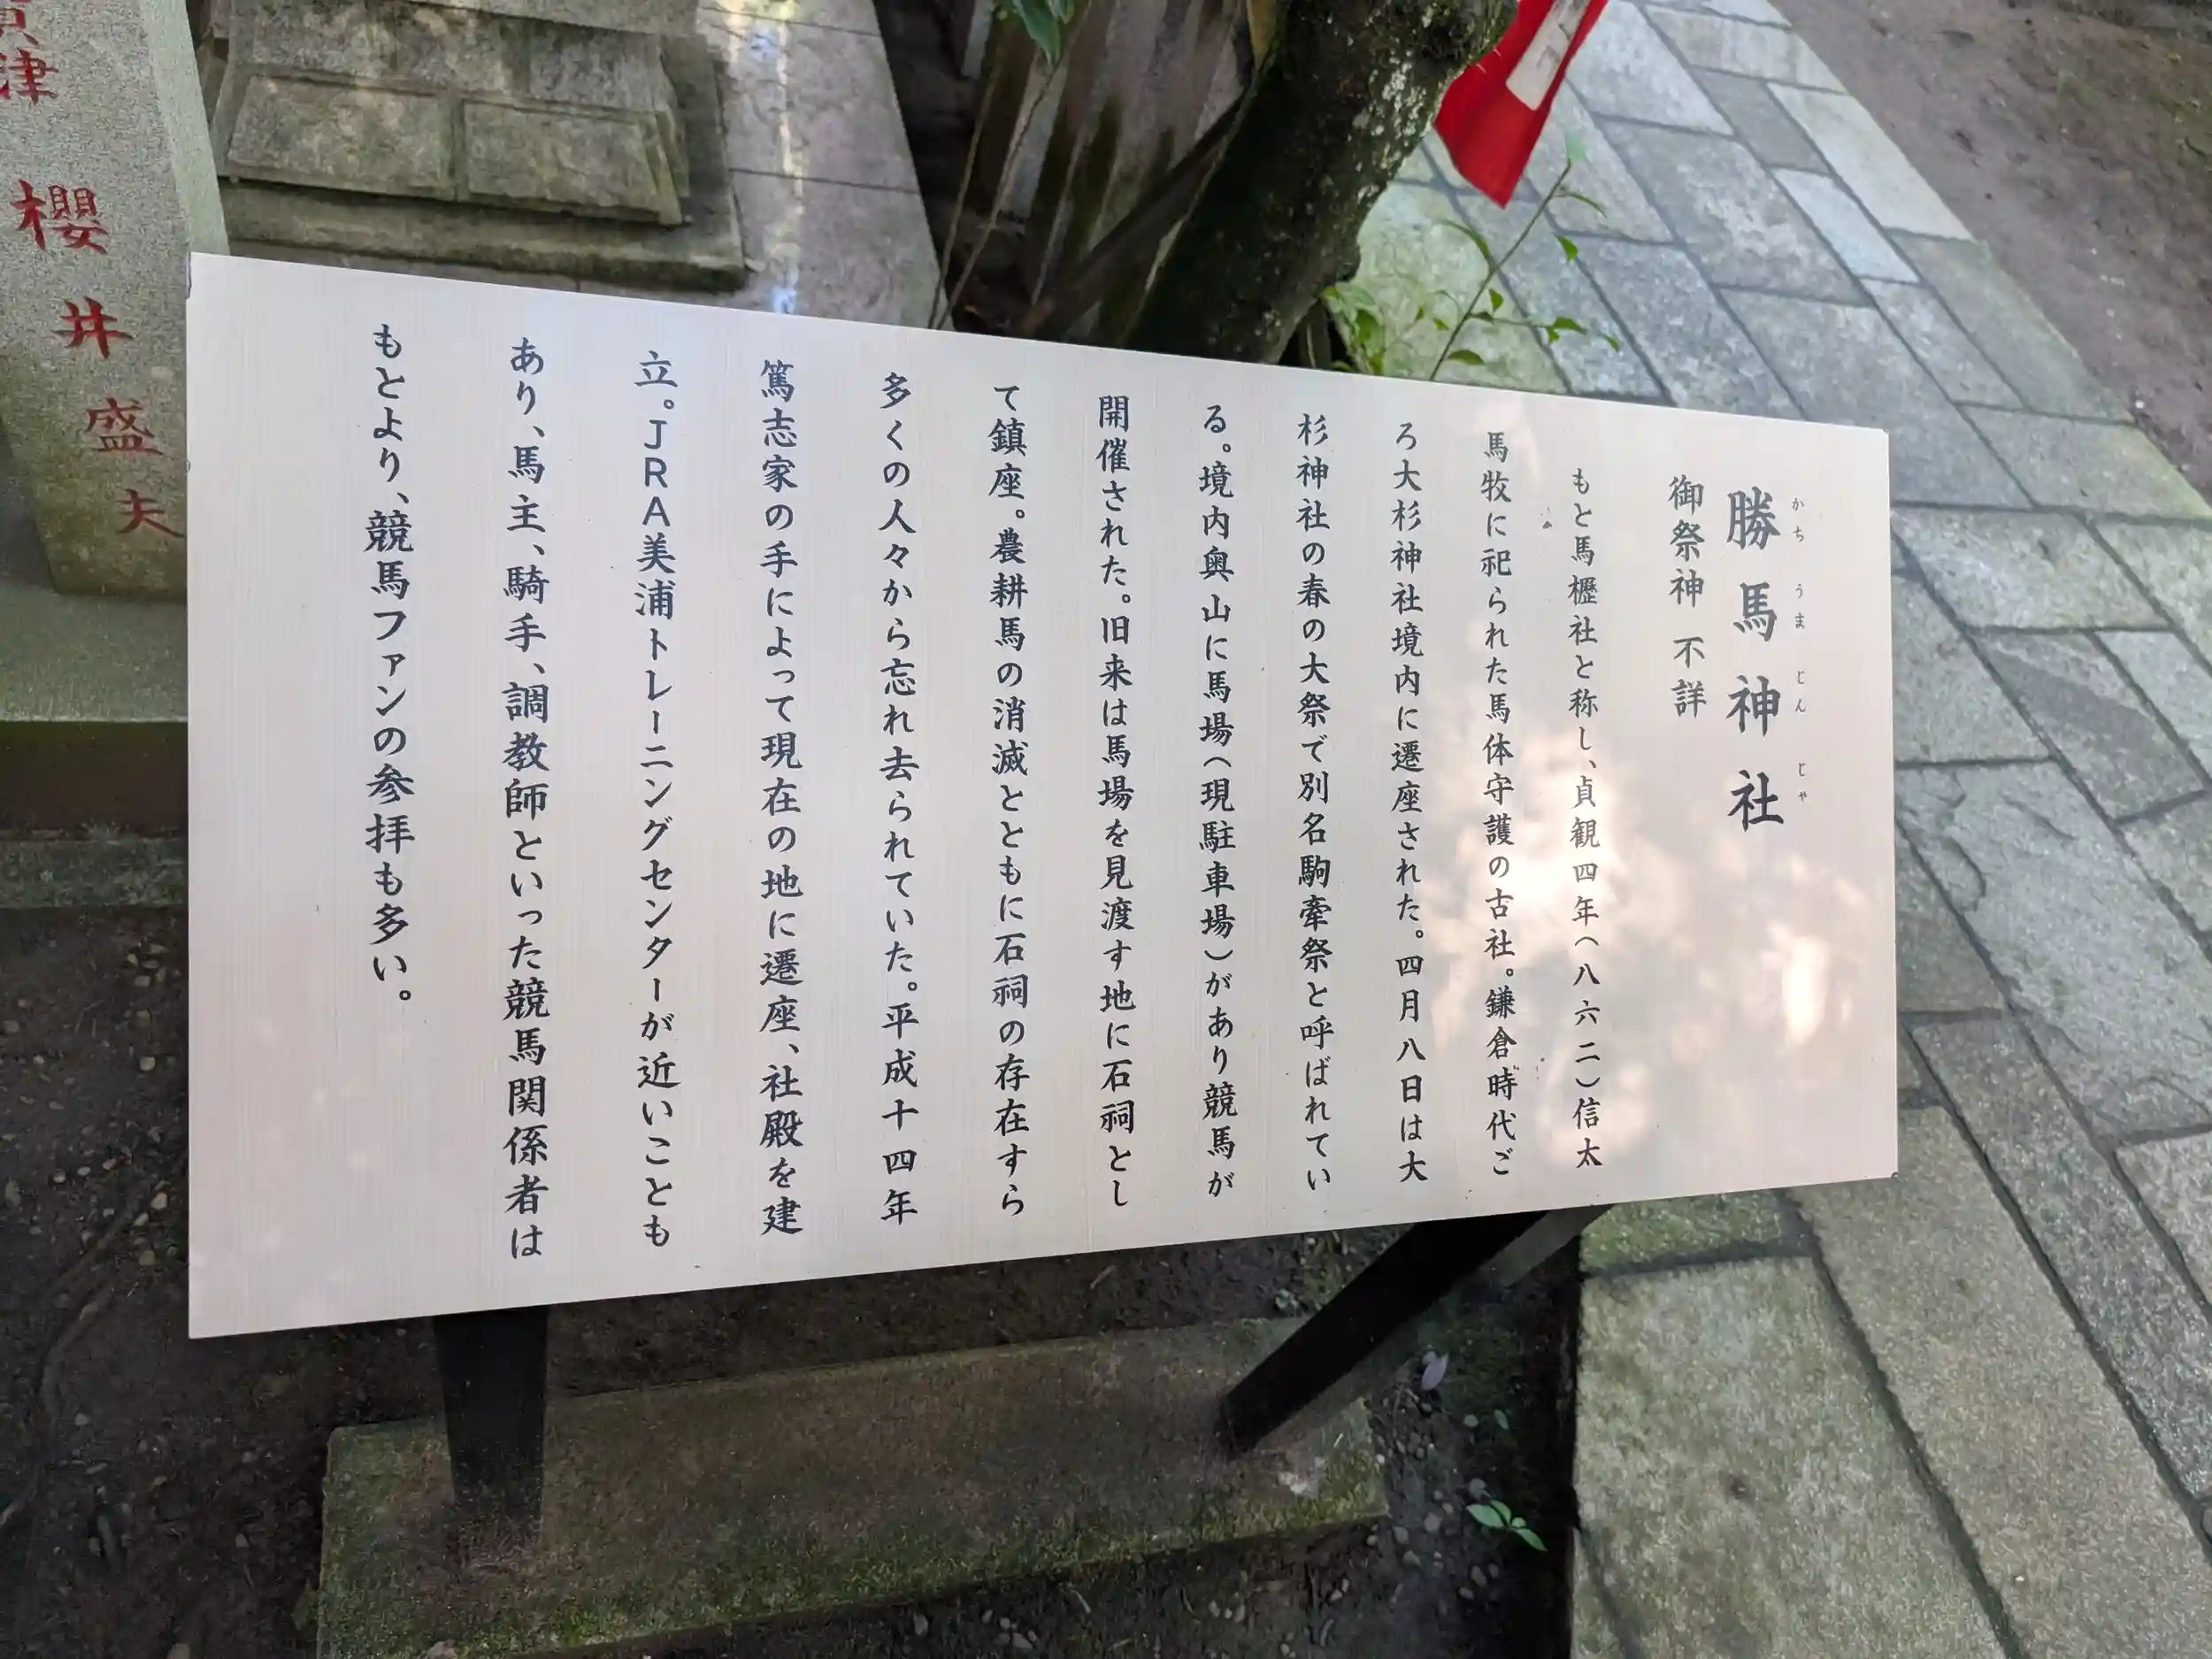 勝馬神社
かちうまじんじゃ
御祭神 不詳
もと馬櫪社と称し、貞観四年(八六二)信太
馬牧に祀られた馬体守護の古社。鎌倉時代ご
ろ大杉神社境内に遷座された。四月八日は大
杉神社の春の大祭で別名駒牽祭と呼ばれてい
る。境内奥山に馬場(現駐車場)があり競馬が
開催された。旧来は馬場を見渡す地に石祠とし
て鎮座。農耕馬の消滅とともに石祠の存在すら
多くの人々から忘れ去られていた。平成十四年
篤志家の手によって現在の地に遷座、社殿を建
立。JRA美浦トレーニングセンターが近いことも
あり、馬主、騎手、調教師といった競馬関係者は
もとより、競馬ファンの参拝も多い。
津 櫻井盛夫